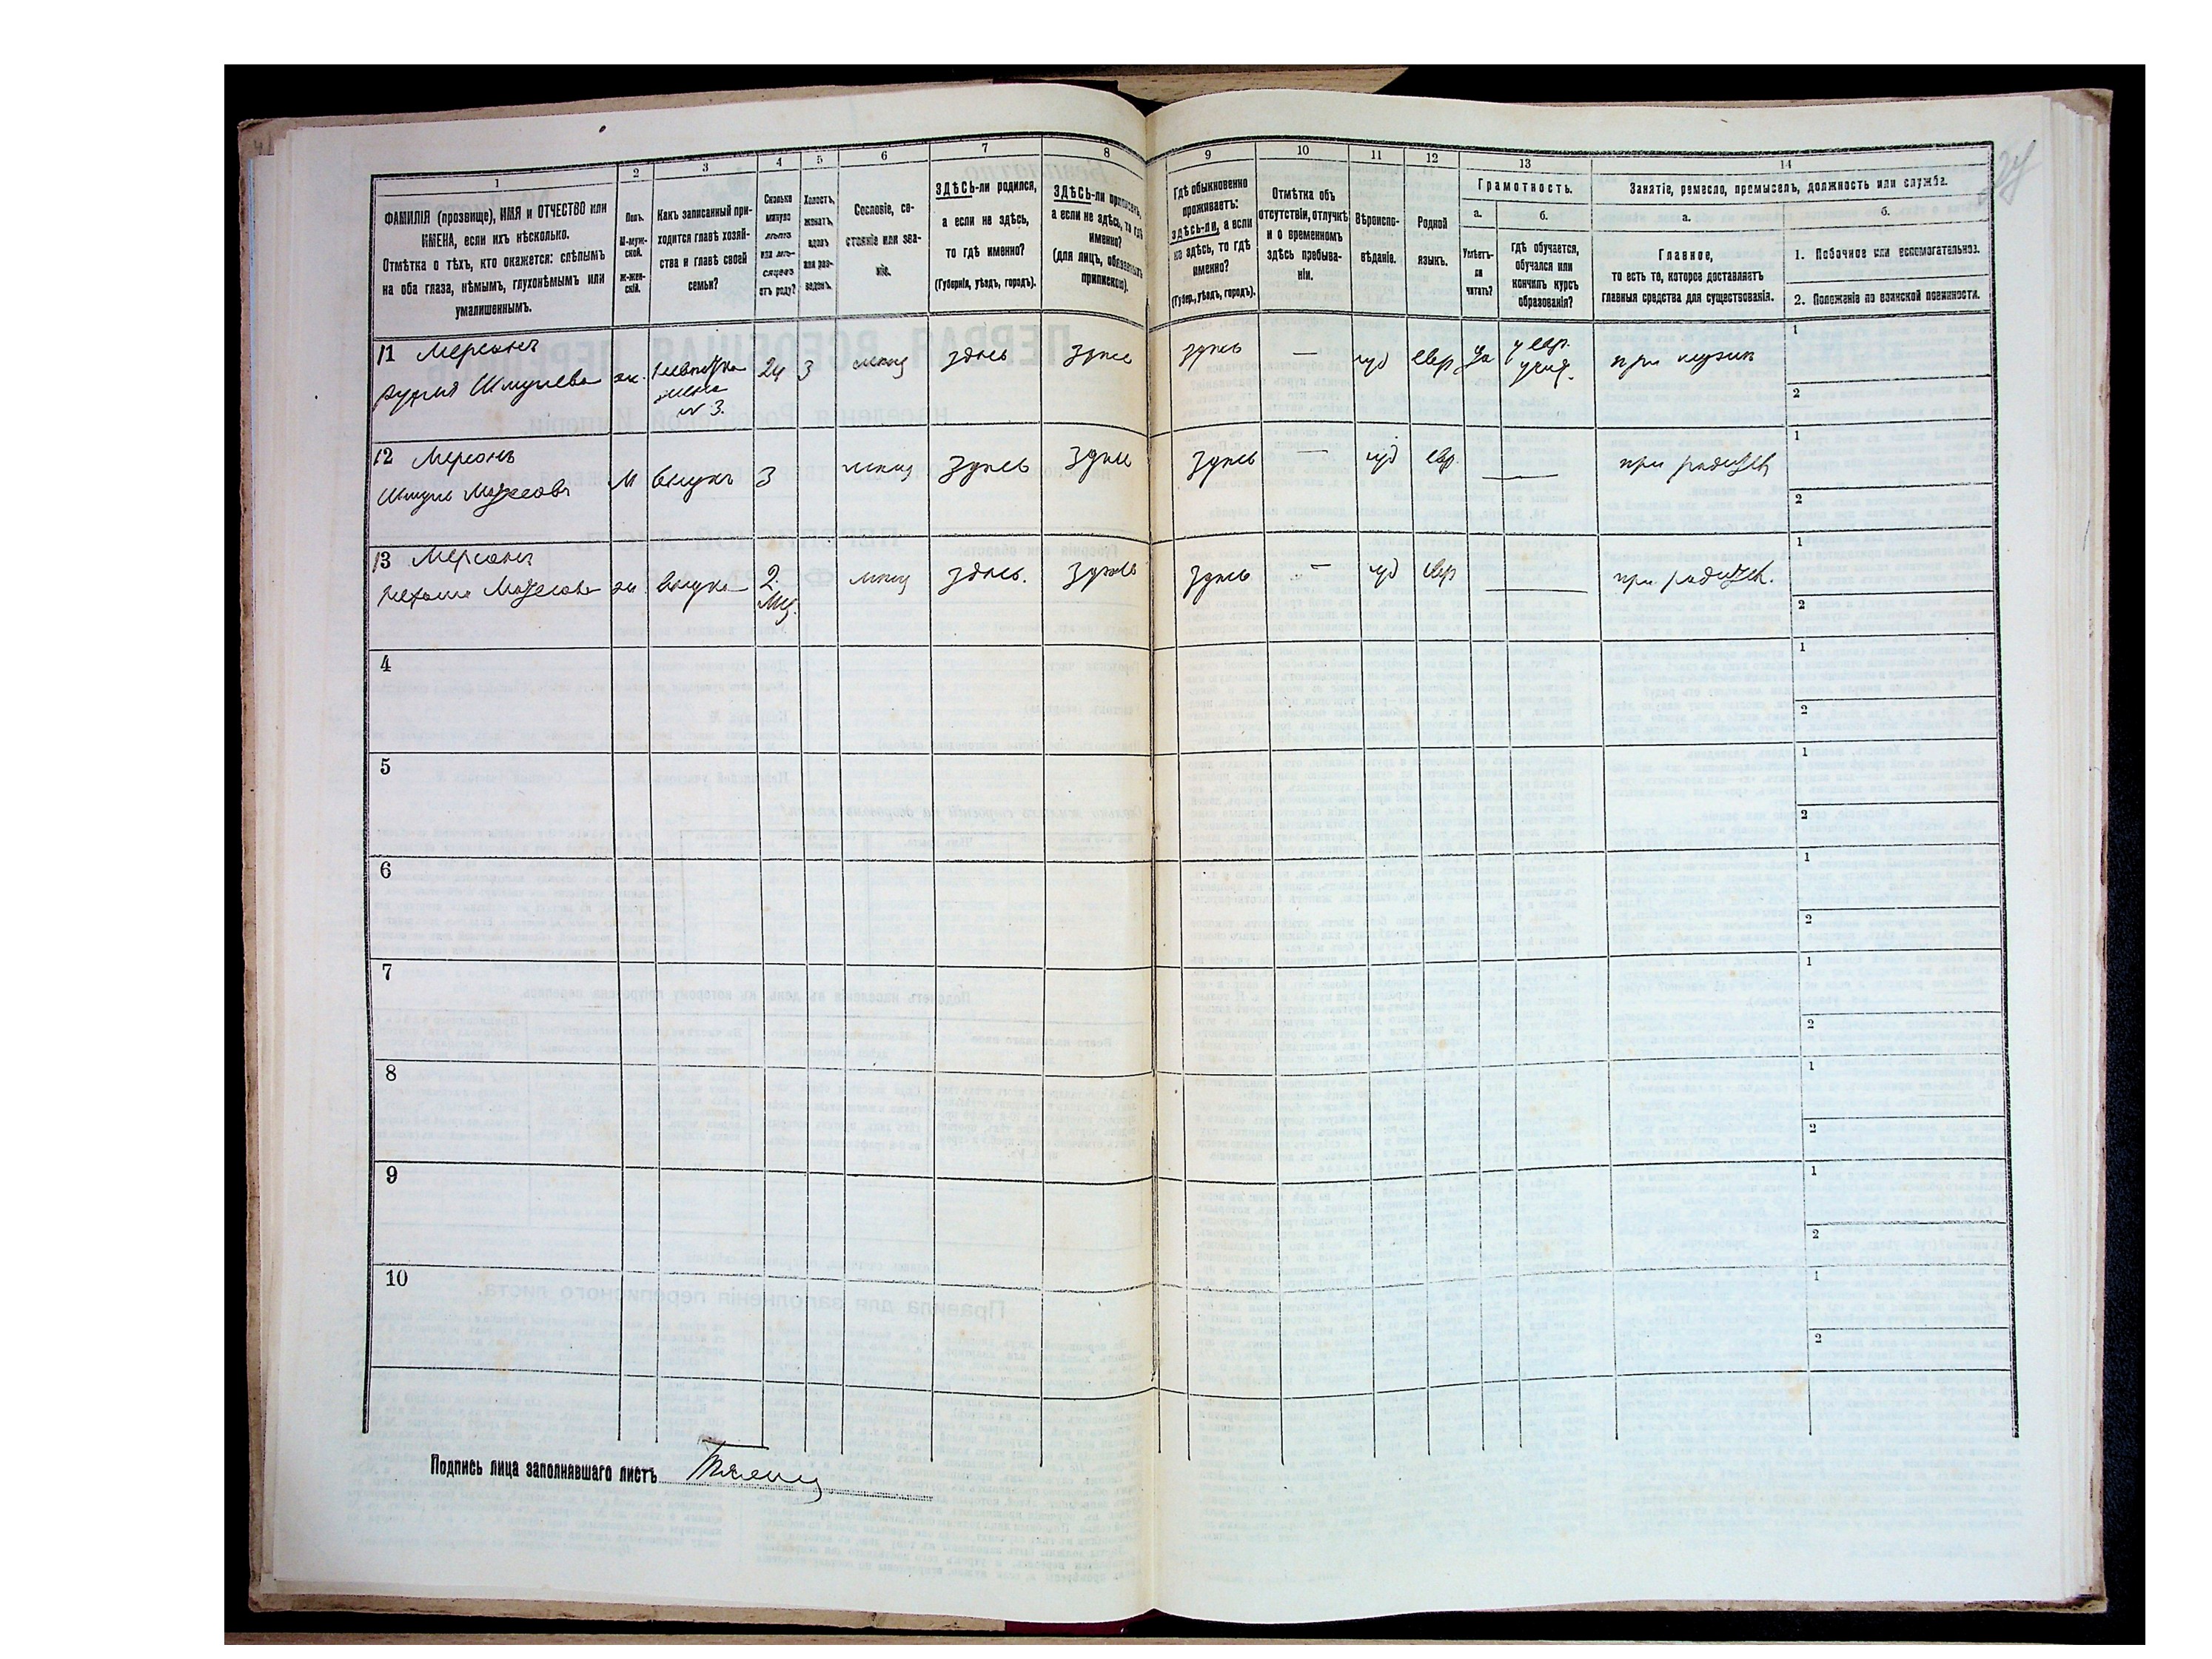 1
2
3
4
5
6
7
8
9
10
11
12
13
14
ФАМИЛІЯ (прозвище), ИМЯ и ОТЧЕСТВО или
ИМЕНА, если ихъ нѣсколько.
Отмѣтка о тѣхъ, кто окажется: слѣпымъ
на оба глаза, нѣмымъ, глухонѣмымъ или
умалишеннымъ.
Полъ.
М-муж-
ской.
Ж-жен-
скій.
Какъ записанный при-
ходится главѣ хозяй-
ства и главѣ своей
семьи?
Сколько
минуло
лѣтъ
или мѣ-
сяцевъ
отъ роду?
Холостъ,
женатъ,
вдовъ
или раз-
веденъ.
Сословіе, со-
стояніе или зва-
ніе.
ЗДѢСЬ-ли родился,
а если не здѣсь,
то гдѣ именно?
(Губернія, уѣздъ, городъ).
ЗДѢСЬ-ли приписанъ,
а если не здѣсь, то гдѣ
именно?
(для лицъ, обязанныхъ
припиской).
Гдѣ обыкновенно
проживаетъ:
здѣсь-ли, а если
не здѣсь, то гдѣ
именно?
(Губер., уѣздъ, городъ).
Отмѣтка объ
отсутствіи, отлучкѣ
и о временномъ
здѣсь пребыва-
ніи.
Вѣроиспо-
вѣданіе.
Родной
языкъ.
Грамотность.
а.
б.
Умѣетъ-
ли
читать?
гдѣ обучается,
обучался или
кончилъ курсъ
образованія?
Занятіе, ремесло, промыселъ, должность или служба.
а.
б.
Главное,
то есть то, которое доставляетъ
главныя средства для существованія.
1. Побочное или вспомогательное.
2. Положеніе по воинской повинности.
11 Мерсонъ
Шмуилева жк. невѣстка 24 З мѣщ здѣсь здѣсь здѣсь — іуд евр. да у евр.
жена учит. при мужѣ
№ 3.
1
2
12 Мерсонъ
Шмуль Мовшовъ М внукъ 3 мѣщ здѣсь здѣсь здѣсь — іуд евр. — при родител
1
2
13 Мерсонъ
Мовшова жк внука 2 мѣщ здѣсь. здѣсь здѣсь — іуд евр — при родител.
мѣс.
1
2
4
1
2
5
1
2
6
1
2
7
1
2
8
1
2
9
1
2
10
1
2
Подпись лица заполнявшаго листъ